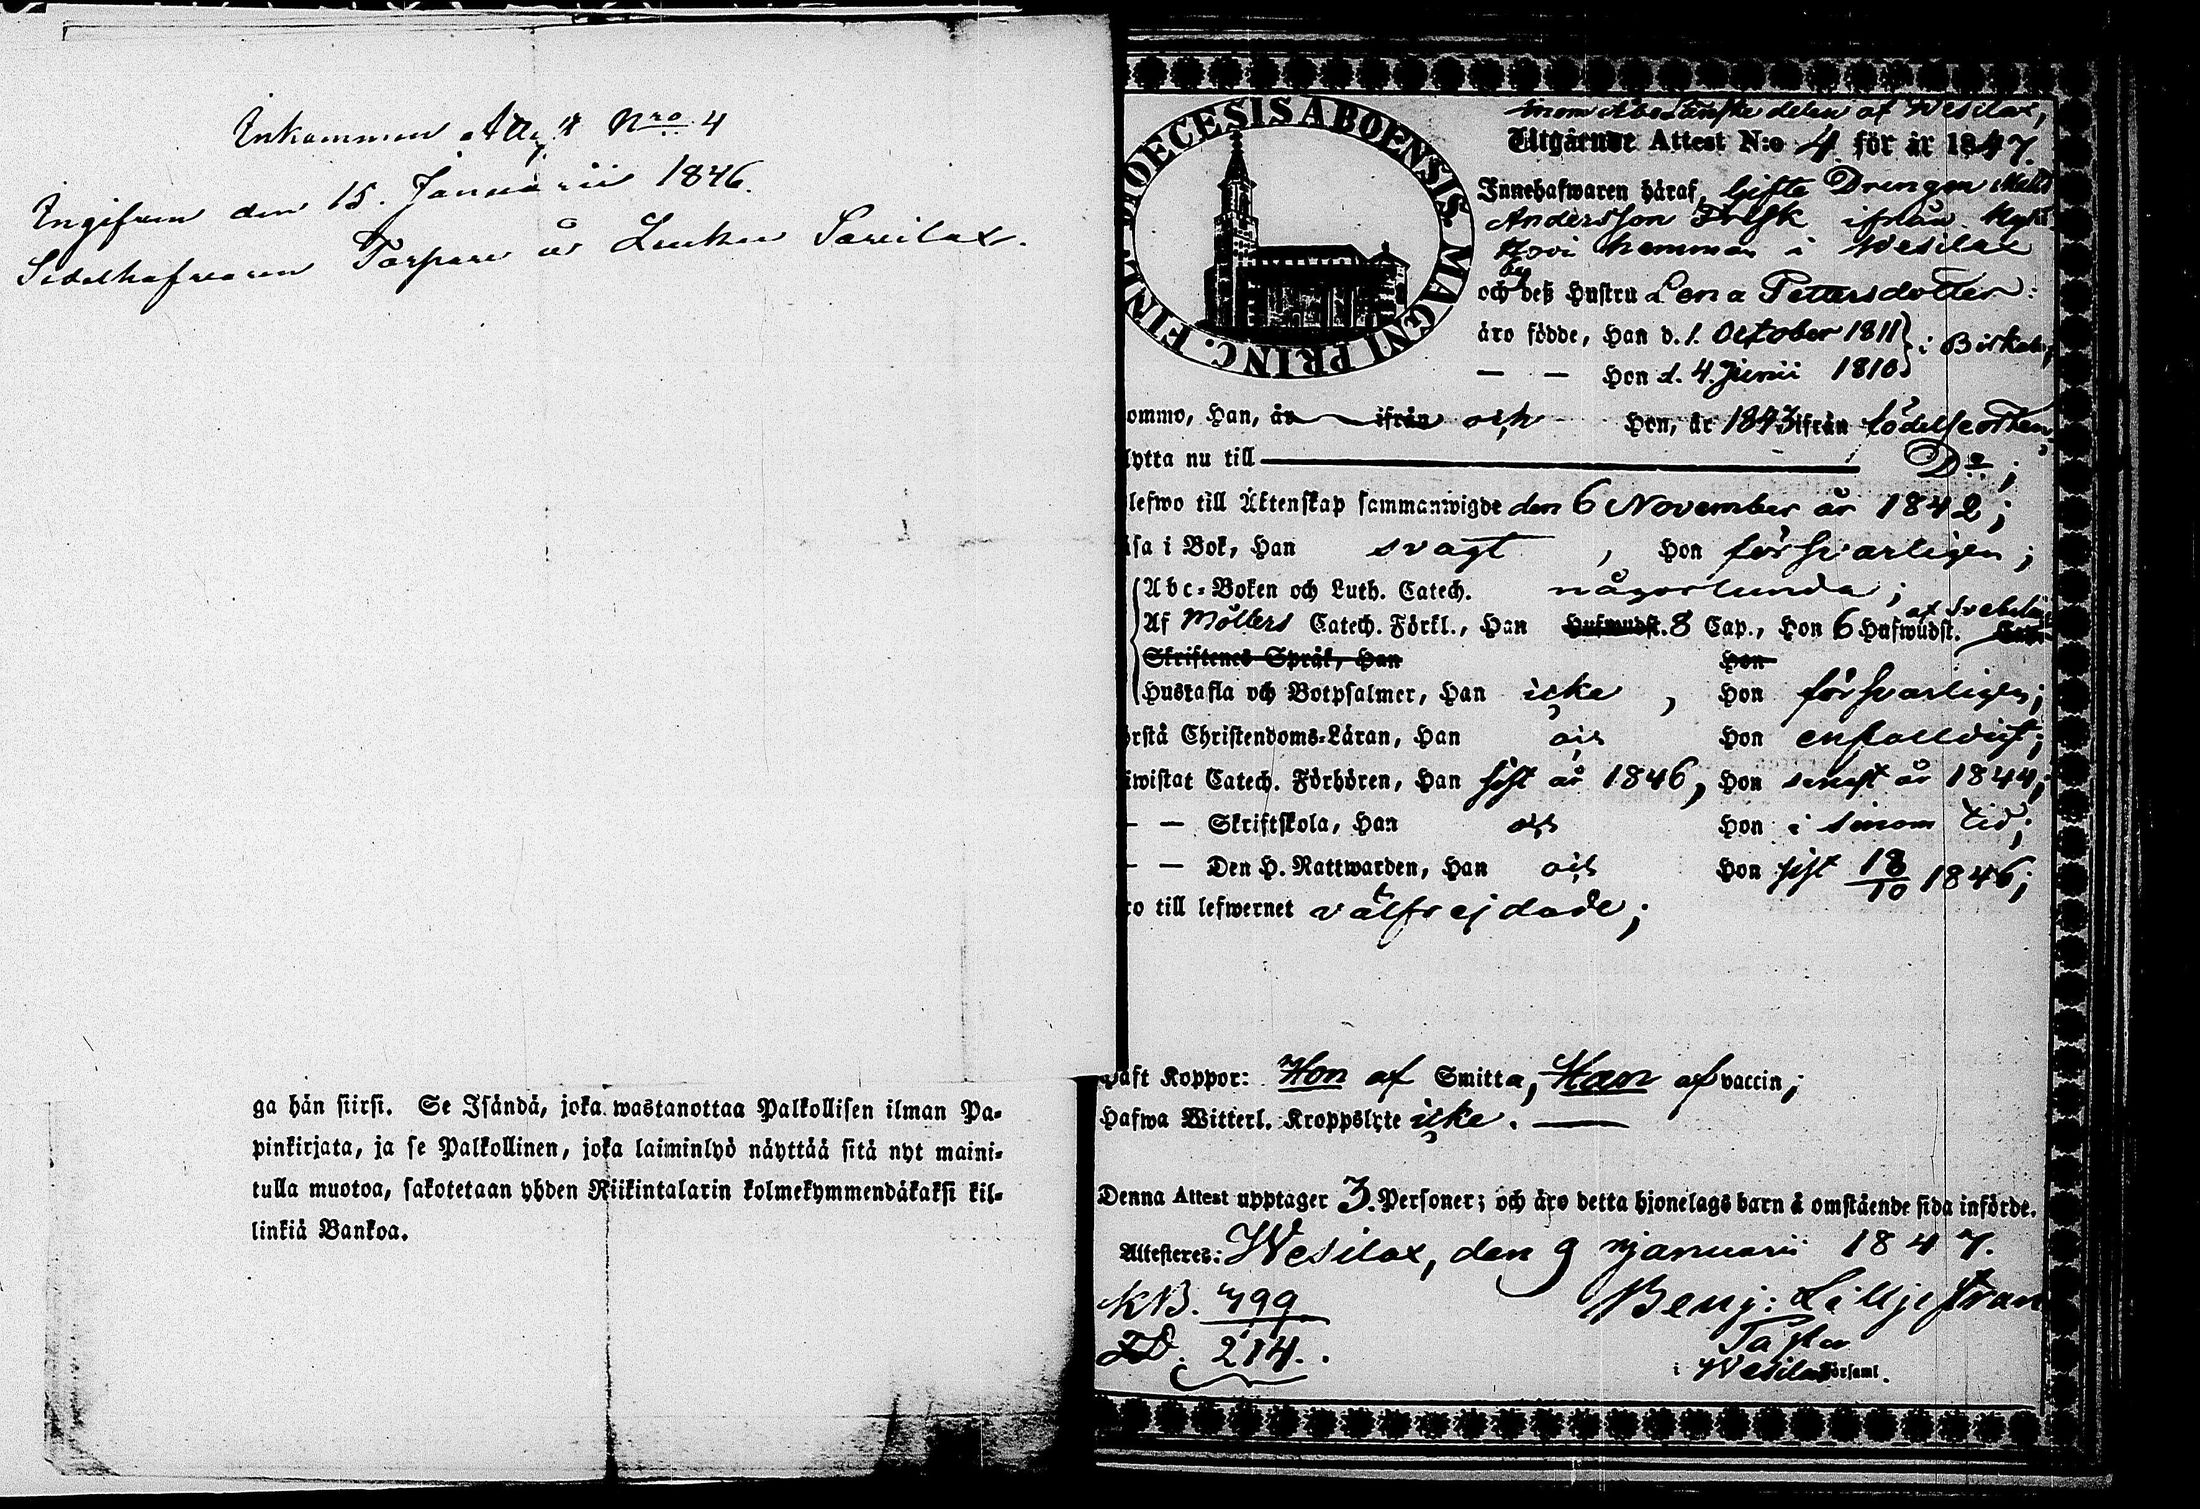 Inkommen Attest Nro 4
Ingifven den 15. Januarii 1846.
Sedelhafvaren Torpare å
ga hän siirsi. Se Isändä, joka wastanottaa Palkollisen ilman Pa-
pinkirjata, ja se Palkollinen, joka laiminlyö näyttää sitä nyt maini-
tulla muotoa, sakotetaan yhden Riikintalarin kolmekymmendäkaksi kil-
linkiä Bankoa.
DIOECESIS ABOENSIS. MAGNI PRINC. FINL.
inom Åbo Länske delen af Wesilax,
Utgående Attest N:o 4 för år 1847.
Innehafwaren häraf, gifte Drengen Matts
Andersson Frisk ifrån
Hovi hemman i Wesilax
by
och deß Hustru Lena Pettersdotter:
äro födde, Han d. 1. October 1811 } i Birkala;
— — Hon d. 4. Junii 1810
ommo, Han, år ifrån och Hon, år 1843 ifrån födelseorten,
lytta nu till D:o;
lefwo till Äktenskap sammanwigde den 6 November år 1842;
äsa i Bok, Han svagt, Hon försvarligen;
Abc-Boken och Luth. Catech. någorlunda;
Af Möllers Catech. Förkl., Han Hufwudst. 8 Cap., Hon 6 Hufwudst. af Svebelii Cap.
Skriftenes Språk, Han Hon
Hustafla och Botpsalmer, Han icke, Hon försvarligen;
örstå Christendoms-Läran, Han Hon enfalldigt;
iwistat Catech. Förhören, Han sist år 1846, Hon senast år 1844;
— — Skriftskola, Han Hon i sinom tid;
— — Den H. Nattwarden, Han Hon sist 18/10 1846;
ro till lefwernet välfrejdade;
Haft Koppor: Hon af Smitta, Han af vaccin;
Hafwa Witterl. Kroppslyte icke.
Denna Attest upptager 3. Personer; och äro detta hjonelags barn å omstående sida införde.
Attesteres: Wesilax, den 9 januarii 1847.
KB. 799
214.
Benj: Lilljestran
Pastor
i Wesilax Församl.